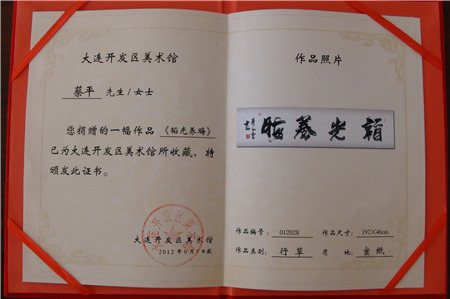 大连开发区美术馆
蔡平 先生/女士
您捐赠的一幅作品《韬光养晦》
已为大连开发区美术馆所收藏，特
颁发此证书。
大连开发区美术馆
2012年9月
作品照片
韜光養晦
作品编号： 012028 作品尺寸： 192×46cm
作品类别： 行草 质 地： 宣纸